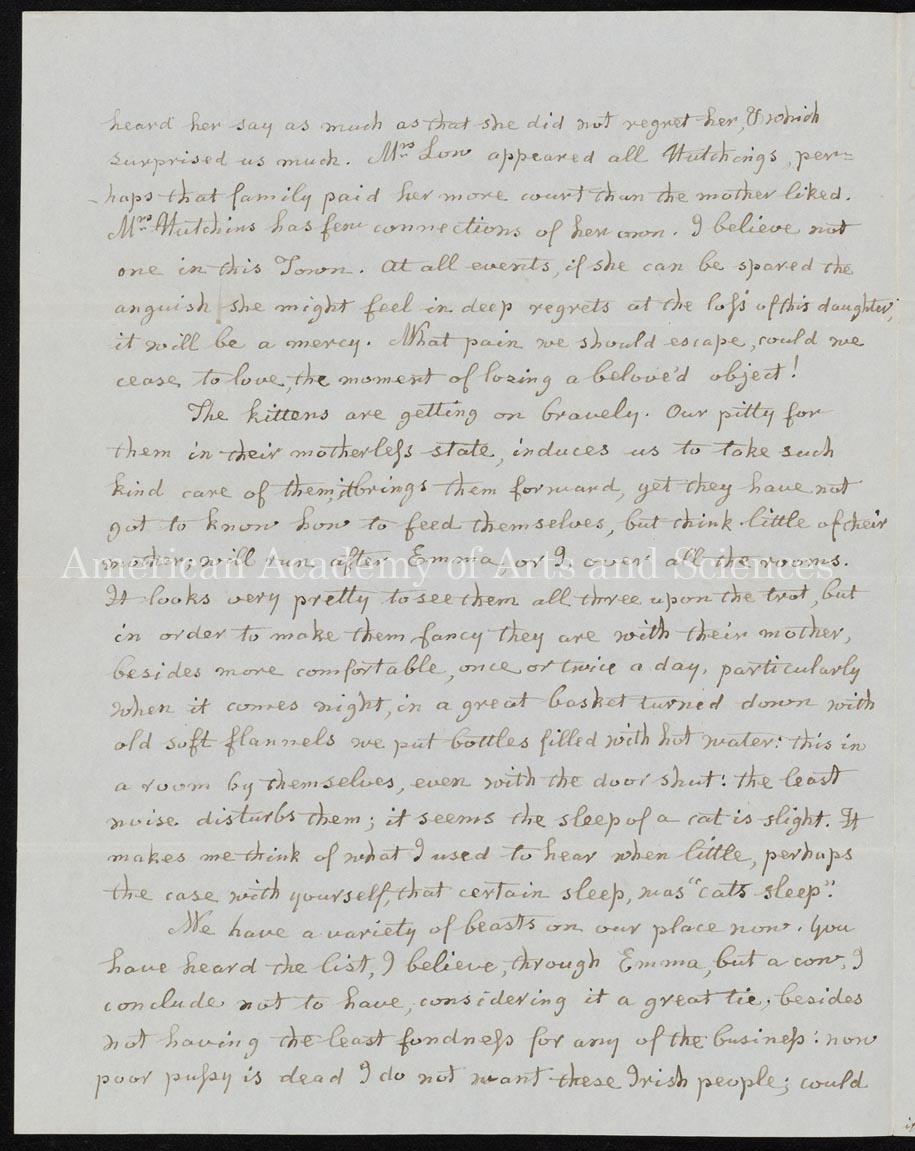 heard her say as much as that she did not regret her, & which
surprised us much. Mrs Low appeared all Hutchings, per=
haps that family paid her more court than the mother liked.
Mrs Hutchins has few connections of her own. I believe not
one in this Town. At all events, if she can be spared the
anguish she might feel in deep regrets at the loſs of this daughter,
it will be a mercy. What pain we should escape, could we
cease to love, the moment of losing a belove'd object!
The kittens are getting on bravely. Our pitty for
them in their motherleſs state, induces us to take such
kind care of them, it brings them forward, yet they have not
got to know how to feed themselves, but think little of their
mother; will run after Emma or I, over all the rooms.
American Academy of Arts and Sciences
It looks very pretty to see them all three upon the trot, but
in order to make them fancy they are with their mother,
besides more comfortable, once, or twice a day, particularly
when it comes night, in a great basket turned down with
old soft flannels we put bottles filled with hot water: this in
a room by themselves, even with the door shut: the least
noise disturbs them; it seems the sleep of a cat is slight. It
makes me think of what I used to hear when little, perhaps
the case with yourself, that certain sleep, was "cats sleep".
We have a variety of beasts on our place now. You
have heard the list, I believe, through Emma, but a cow, I
conclude not to have, considering it a great tie, besides
not having the least fondneſs for any of the busineſs: now
poor puſsy is dead I do not want these Irish people; could